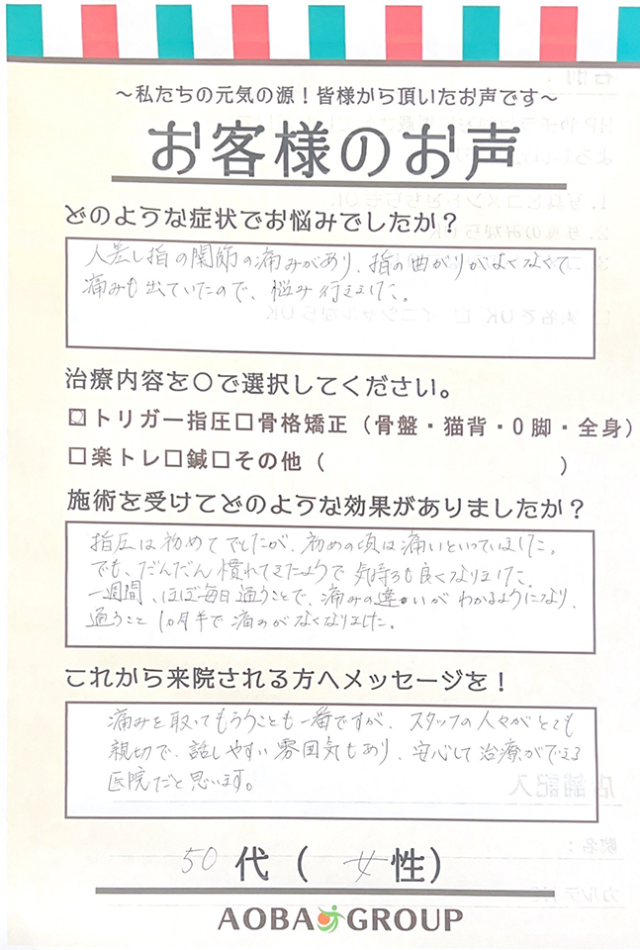 ～私たちの元気の源！皆様から頂いたお声です～
お客様のお声
どのような症状でお悩みでしたか？
人差し指の関節の痛みがあり、指の曲がりがよくなくて
痛みも出ていたので、悩み行きました。
治療内容を〇で選択してください。
☑トリガー指圧□骨格矯正（骨盤・猫背・O脚・全身）
□楽トレ□鍼□その他（　　　　　　　　　　）
施術を受けてどのような効果がありましたか？
指圧は初めてでしたが、初めの頃は痛いといっていました。
でも、だんだん慣れてきたようで気持ちも良くなりました。
一週間、ほぼ毎日通うことで、痛みの違いがわかるようになり、
通うこと1ヵ月半で痛みがなくなりました。
これから来院される方へメッセージを！
痛みを取ってもらうことも一番ですが、スタッフの人々がとても
親切で、話しやすい雰囲気もあり、安心して治療ができる
医院だと思います。
50代（女性）
AOBA GROUP